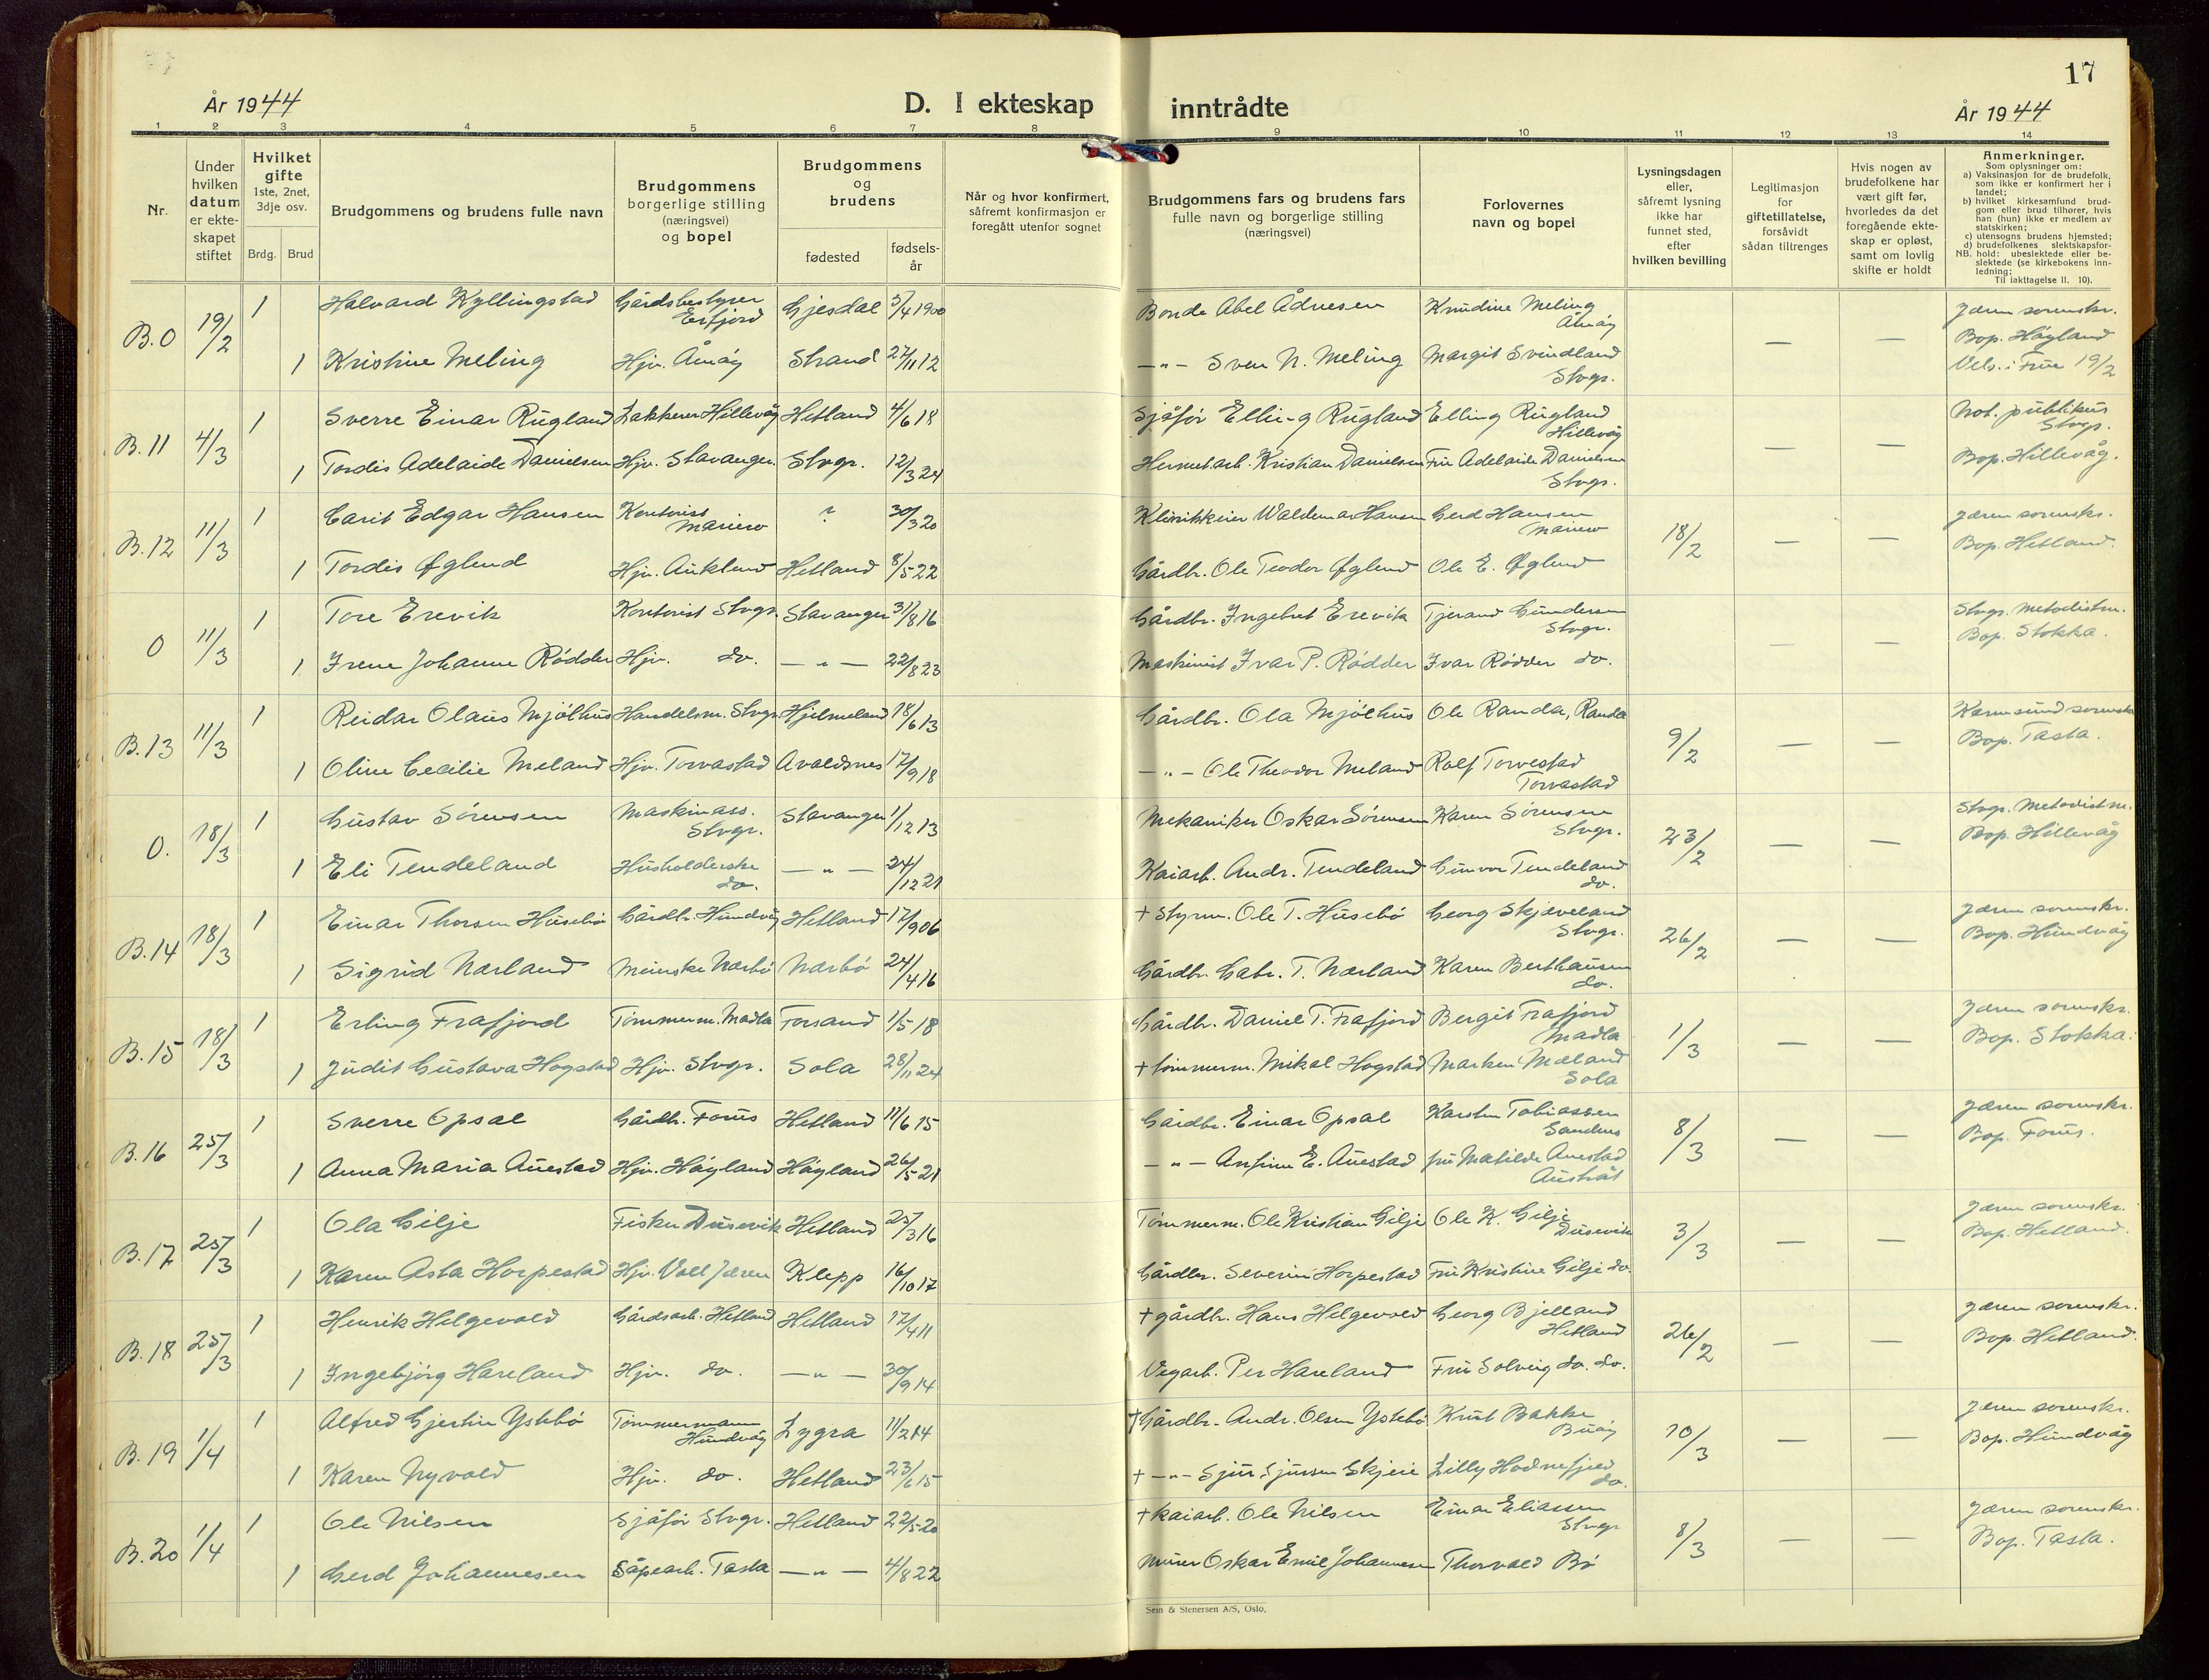 17
År 1944
D. I ekteskap inntrådte
År 1944
1 2 3 4 5 6 7 8 9 10 11 12 13 14
Nr.
Under hvilken datum er ekte-skapet stiftet
Hvilket gifte 1ste, 2net, 3dje osv.
Brdg. Brud
Brudgommens og brudens fulle navn
Brudgommens borgerlige stilling (næringsvei) og bopel
Brudgommens og brudens
fødested
fødsels-år
Når og hvor konfirmert, såfremt konfirmasjon er foregått utenfor sognet
Brudgommens fars og brudens fars fulle navn og borgerlige stilling (næringsvei)
Forlovernes navn og bopel
Lysningsdagen eller, såfremt lysning ikke har funnet sted, efter hvilken bevilling
Legitimasjon for giftetillatelse, forsåvidt sådan tiltrenges
Hvis nogen av brudefolkene har vært gift før, hvorledes da det foregående ekte-skap er opløst, samt om lovlig skifte er holdt
Anmerkninger.
Som oplysninger om:
a) Vaksinasjon for de brudefolk, som ikke er konfirmert her i landet;
b) hvilket kirkesamfund brud-gom eller brud tilhører, hvis han (hun) ikke er medlem av statskirken;
c) utensogns brudens hjemsted;
d) brudefolkenes slektskapsfor-hold: ubeslektede eller be-slektede (se kirkebokens inn-ledning;
NB.
Til iakttagelse II. 10).
B.0 19/2 1 Halvard Kyllingstad Gårdsbestyrer Erfjord Gjesdal 3/4 1900 Bonde Abel Ådnesen Knudine Meling Åmøy Jæren sorenskr.
Bop. Høyland
1 Kristine Meling Hjv. Åmøy Strand 27/11 12 —"— Sven N. Meling Margit Svindland Stvgr. — — Vels. i Frue 19/2
B.11 4/3 1 Sverre Einar Rugland Lakkerer Hillevåg Hetland 4/6 18 Sjåfør Elling Rugland Elling Rugland Hillevåg Not. publikus Stvgr.
1 Tordis Adelaide Danielsen Hjv. Stavanger. Stvgr. 12/3 24 Hermet.arb. Kristian Danielsen Fru Adelaide Danielsen Stvgr. — — Bop. Hillevåg.
B.12 11/3 1 Carit Edgar Hansen Kontorist Mariero ? 30/3 20 Waldemar Hansen Gerd Hansen Mariero 18/2 — — Jæren sorenskr.
1 Tordis Øglend Hjv. Auklend Hetland 8/5 22 Gårdbr. Ole Teodor Øglend Ole E. Øglend Bop. Hetland.
0 11/3 1 Tore Erevik Kontorist Stvgr. Stavanger 31/8 16 Gårdbr. Ingebret Erevik Tjerand Gundersen Stvgr. — — Stvgr. Metodistm.
Bop. Stokka.
1 Irene Johanne Rødder Hjv. do. —"— 22/8 23 Maskinist Ivar P. Rødder Ivar Rødder do.
B.13 11/3 1 Reidar Olaus Mjølhus Handelsm. Stvgr. Hjelmeland 18/6 13 Gårdbr. Ola Mjølhus Ole Randa, Randa 9/2 — — Karmsund sorenskr.
Bop. Tasta.
1 Oline Cecilie Meland Hjv. Torvastad Avaldsnes 17/9 18 —"— Ole Theodor Meland Rolf Torvestad Torvastad
0. 18/3 1 Gustav Sørensen Maskinass. Stvgr. Stavanger 1/12 13 Mekaniker Oskar Sørensen Karen Sørensen Stvgr. 23/2 — — Stvgr. Metodistm.
Bop. Hillevåg
1 Eli Tendeland Husholderske do. —"— 24/12 21 Kaiarb. Andr. Tendeland Gunvor Tendeland do.
B.14 18/3 1 Einar Thorsen Husebø Gårdbr. Hundvåg Hetland 17/9 06 + Styrm. Ole T. Husebø Georg Skjæveland Stvgr. 26/2 — — Jæren sorenskr.
Bop. Hundvåg
1 Sigrid Nærland Meierske Nærbø Nærbø 24/4 16 Gårdbr. Gabr. T. Nærland Karen Berthausen do.
B.15 18/3 1 Erling Frafjord Tømmerm. Madla Forsand 1/5 18 Gårdbr. Daniel T. Frafjord Bergit Frafjord Madla 1/3 — — Jæren sorenskr.
Bop. Stokka.
1 Judit Gustava Hogstad Hjv. Stvgr. Sola 28/11 24 + tømmerm. Mikal Hogstad Marken Mæland Sola
B.16 25/3 1 Sverre Opsal Gårdbr. Forus Hetland 11/6 15 Gårdbr. Einar Opsal Karsten Tobiassen Sandnes 8/3 — — Jæren sorenskr.
Bop. Forus.
1 Anna Maria Auestad Hjv. Høyland Høyland 26/5 21 —"— Anfinn E. Auestad fru Matilde Auestad Austråt
B.17 25/3 1 Ola Gilje Fisker Dusevik Hetland 25/3 16 Tømmerm. Ole Kristian Gilje Ole K. Gilje Dusevik 3/3 — — Jæren sorenskr.
Bop. Hetland.
1 Karen Asta Horpestad Hjv. Voll Jæren Klepp 16/10 17 Gårdbr. Severin Horpestad Fru Kristine Gilje do.
B.18 25/3 1 Henrik Helgevold Gårdsarb. Hetland Hetland 17/4 11 + gårdbr. Hans Helgevold Georg Bjelland Hetland 26/2 — — Jæren sorenskr.
Bop. Hetland.
1 Ingebjørg Hareland Hjv. do. —"— 30/9 14 Vegarb. Per Hareland Fru Solveig do. do.
B.19 1/4 1 Alfred Gjertin Ystebø Tømmermann Hundvåg Lygra 11/2 14 + Gårdbr. Andr. Olsen Ystebø Knut Bakke Buøy 10/3 — — Jæren sorenskr.
Bop. Hundvåg
1 Karen Nyvold Hjv. do. Hetland 23/6 15 + —"— Sjur Sjursen Skjeie Lilly Hodnefjeld do.
B.20 1/4 1 Ole Nilsen Sjåfør Stvgr. Hetland 22/5 20 + kaiarb. Ole Nilsen Einar Eliassen Stvgr 8/3 — — Jæren sorenskr.
Bop. Tasta.
1 Gerd Johannesen Såpearb. Tasta —"— 4/8 22 Murer Oskar Emil Johannesen Thorvald Bø
Sem & Stenersen A/S, Oslo.